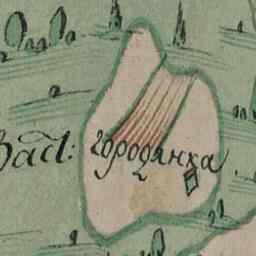 вас: городянка